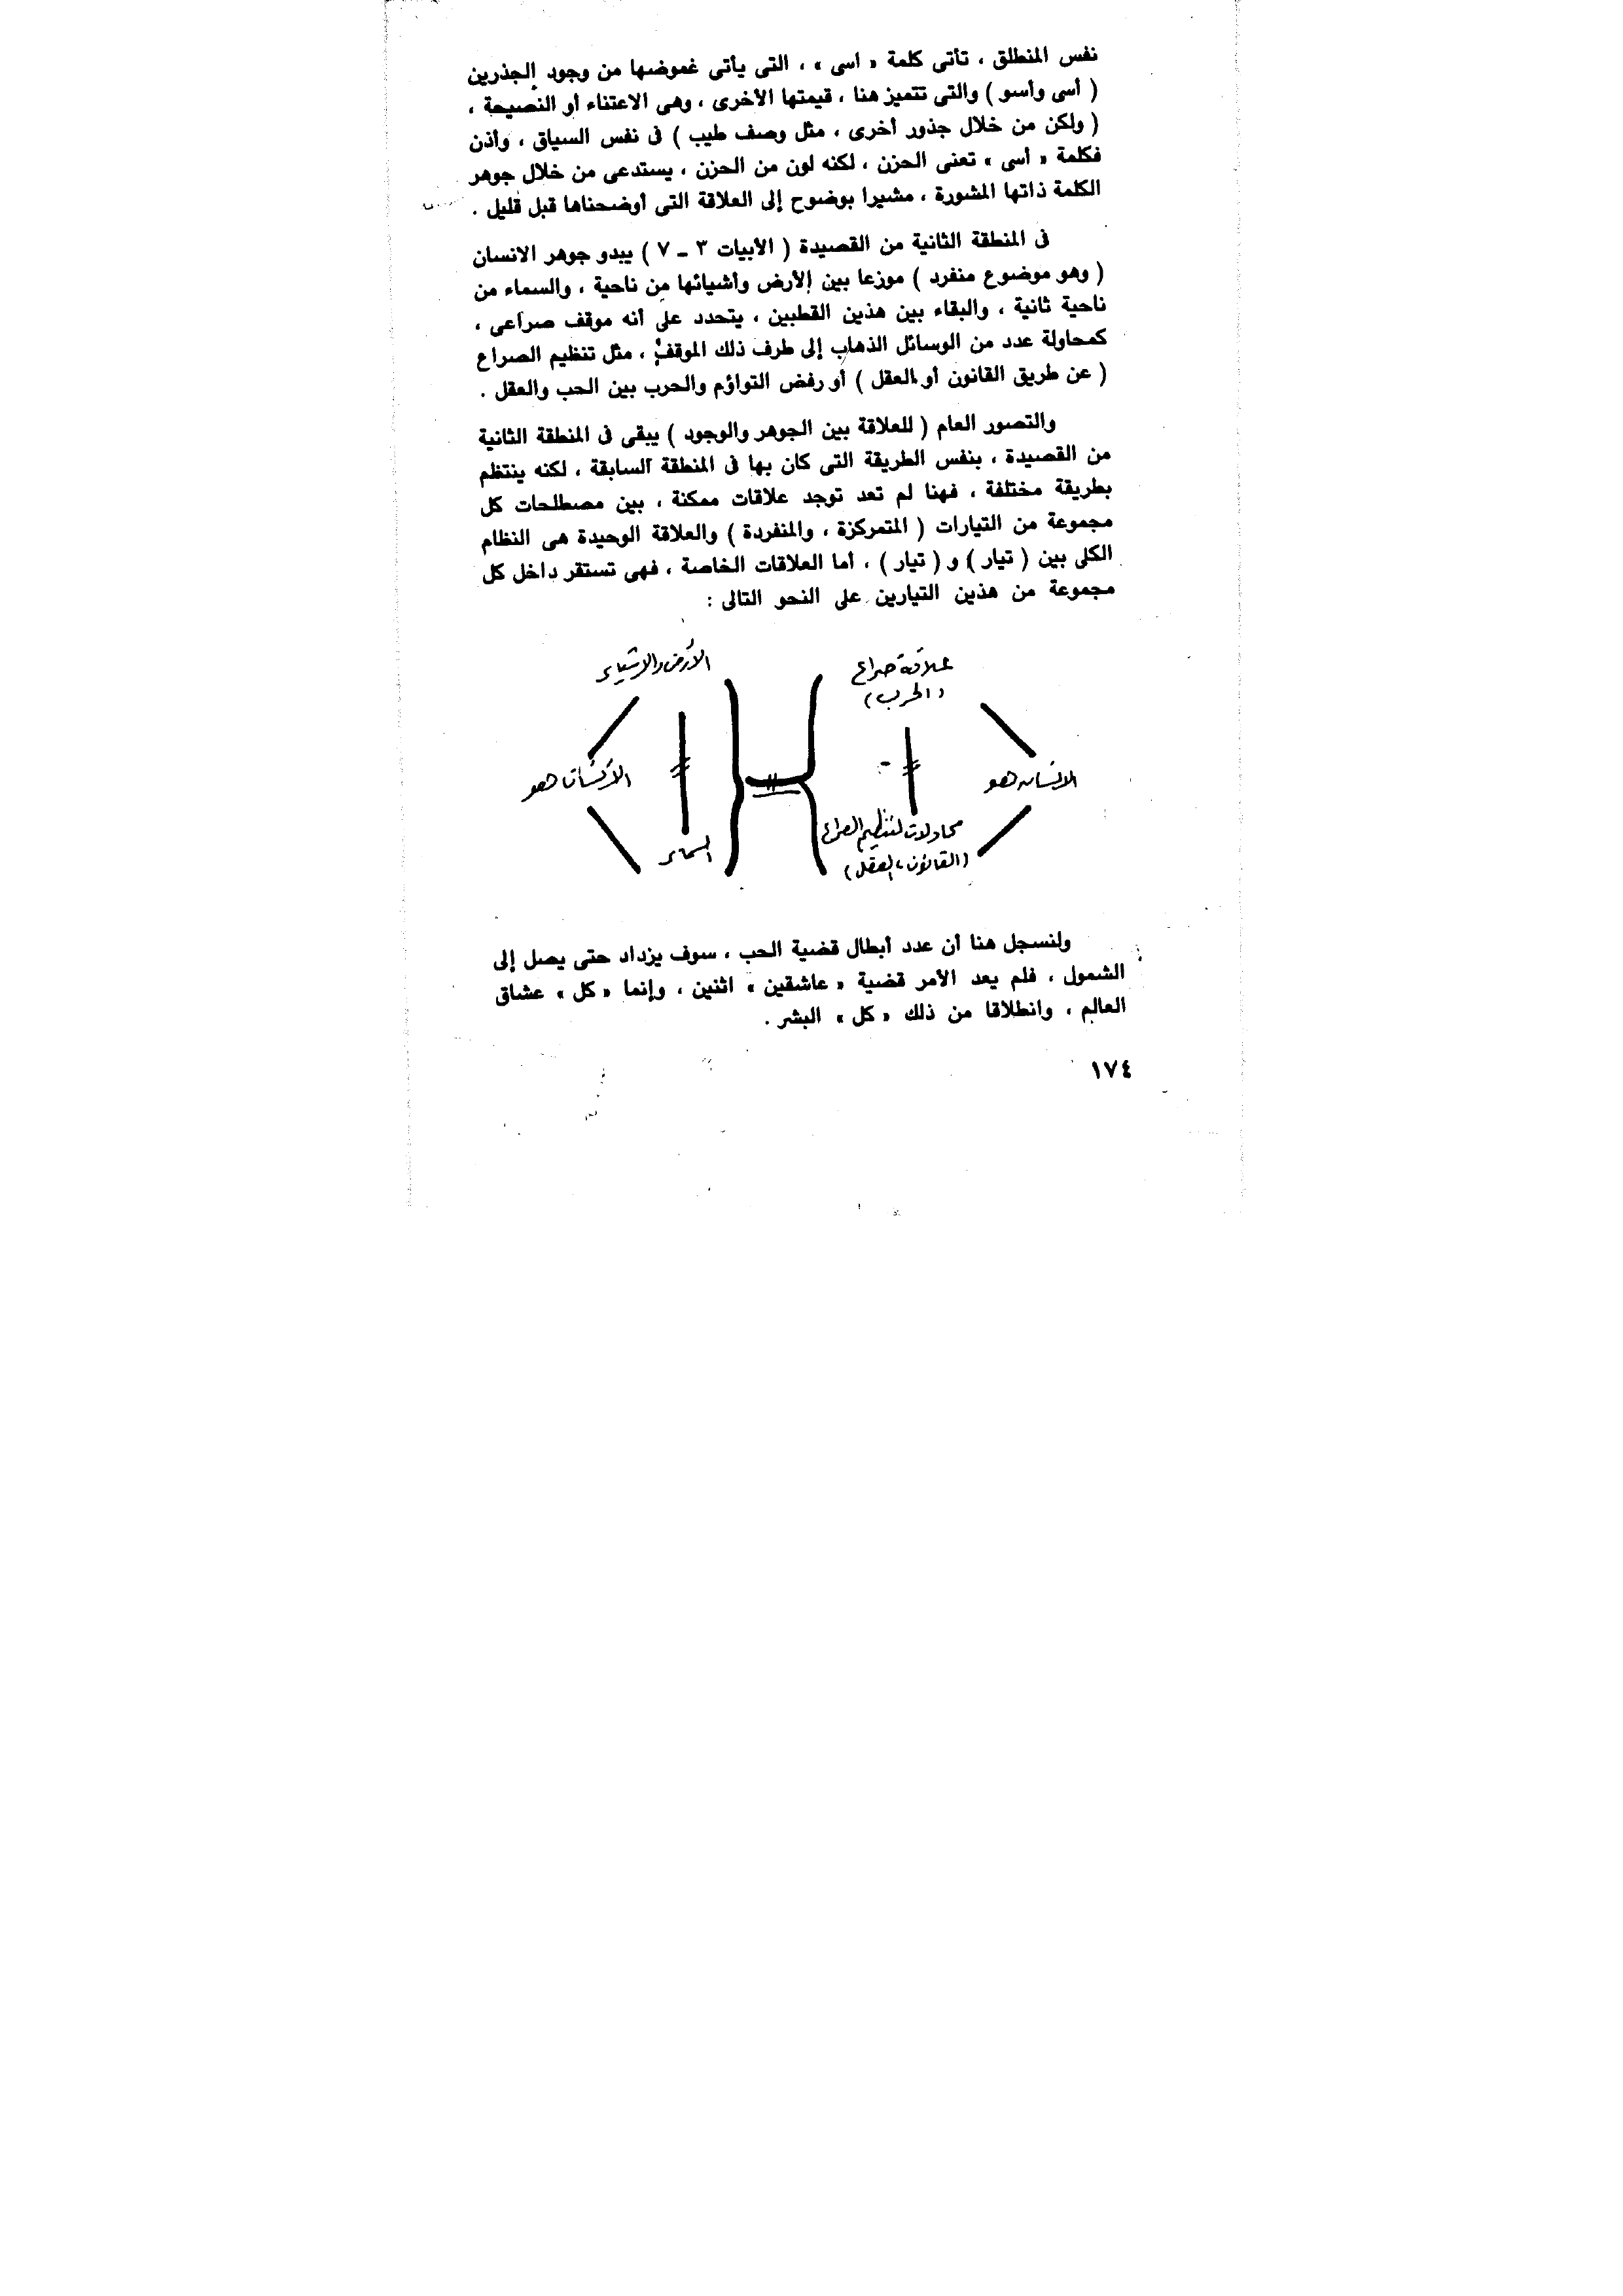 نفس المنطلق ، تأتى كلمة « أسى » ، التى يأتى غموضها من وجود الجذرين
( أسى وأسو ) والتى تتميز هنا ، قيمتها الأخرى ، وهى الاعتناء أو النصيحة ،
( ولكن من خلال جذور أخرى ، مثل وصف طيب ) فى نفس السياق ، وأذن
فكلمة « أسى » تعنى الحزن ، لكنه لون من الحزن ، يستدعى من خلال جوهر
الكلمة ذاتها المشورة ، مشيرا بوضوح إلى العلاقة التى أوضحناها قبل قليل .
فى المنطقة الثانية من القصيدة ( الأبيات ٣ ـ ٧ ) يبدو جوهر الانسان
( وهو موضوع منفرد ) موزعا بين الأرض وأشيائها من ناحية ، والسماء من
ناحية ثانية ، والبقاء بين هذين القطبين ، يتحدد على أنه موقف صراعى ،
كمحاولة عدد من الوسائل الذهاب إلى طرف ذلك الموقف ، مثل تنظيم الصراع
( عن طريق القانون أو العقل ) أو رفض التواؤم والحرب بين الحب والعقل .
والتصور العام ( للعلاقة بين الجوهر والوجود ) يبقى فى المنطقة الثانية
من القصيدة ، بنفس الطريقة التى كان بها فى المنطقة السابقة ، لكنه ينتظم
بطريقة مختلفة ، فهنا لم تعد توجد علاقات ممكنة ، بين مصطلحات كل
مجموعة من التيارات ( المتمركزة ، والمنفردة ) والعلاقة الوحيدة هى النظام
الكلى بين ( تيار ) و ( تيار ) ، أما العلاقات الخاصة ، فهى تستقر داخل كل
مجموعة من هذين التيارين على النحو التالى :
علاقة صراع
(الحرب)
الأرض والأشياء
الإنسان هو
الإنسان هو
محاولات لتنظيم الصراع
(القانون، العقل)
السماء
ولنسجل هنا أن عدد أبطال قضية الحب ، سوف يزداد حتى يصل إلى
الشمول ، فلم يعد الأمر قضية « عاشقين » اثنين ، وإنما « كل » عشاق
العالم ، وانطلاقا من ذلك « كل » البشر .
١٧٤